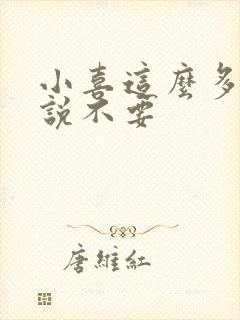 小喜這麼多
說不要
唐維紅